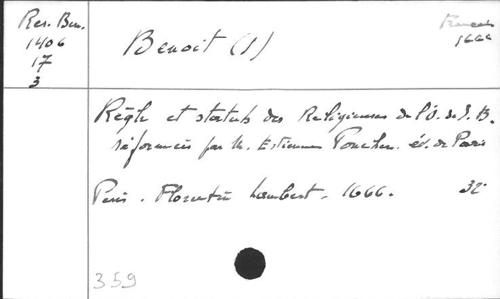 Res. Ben.
1406
17
3
Benoit (S)
France
1666
Règle et statuts des Religieuses de l'O. de S. B.
réformées par M. Estienne Poncher. év. de Paris
Paris. Florentin Lambert, 1666. 32°
359